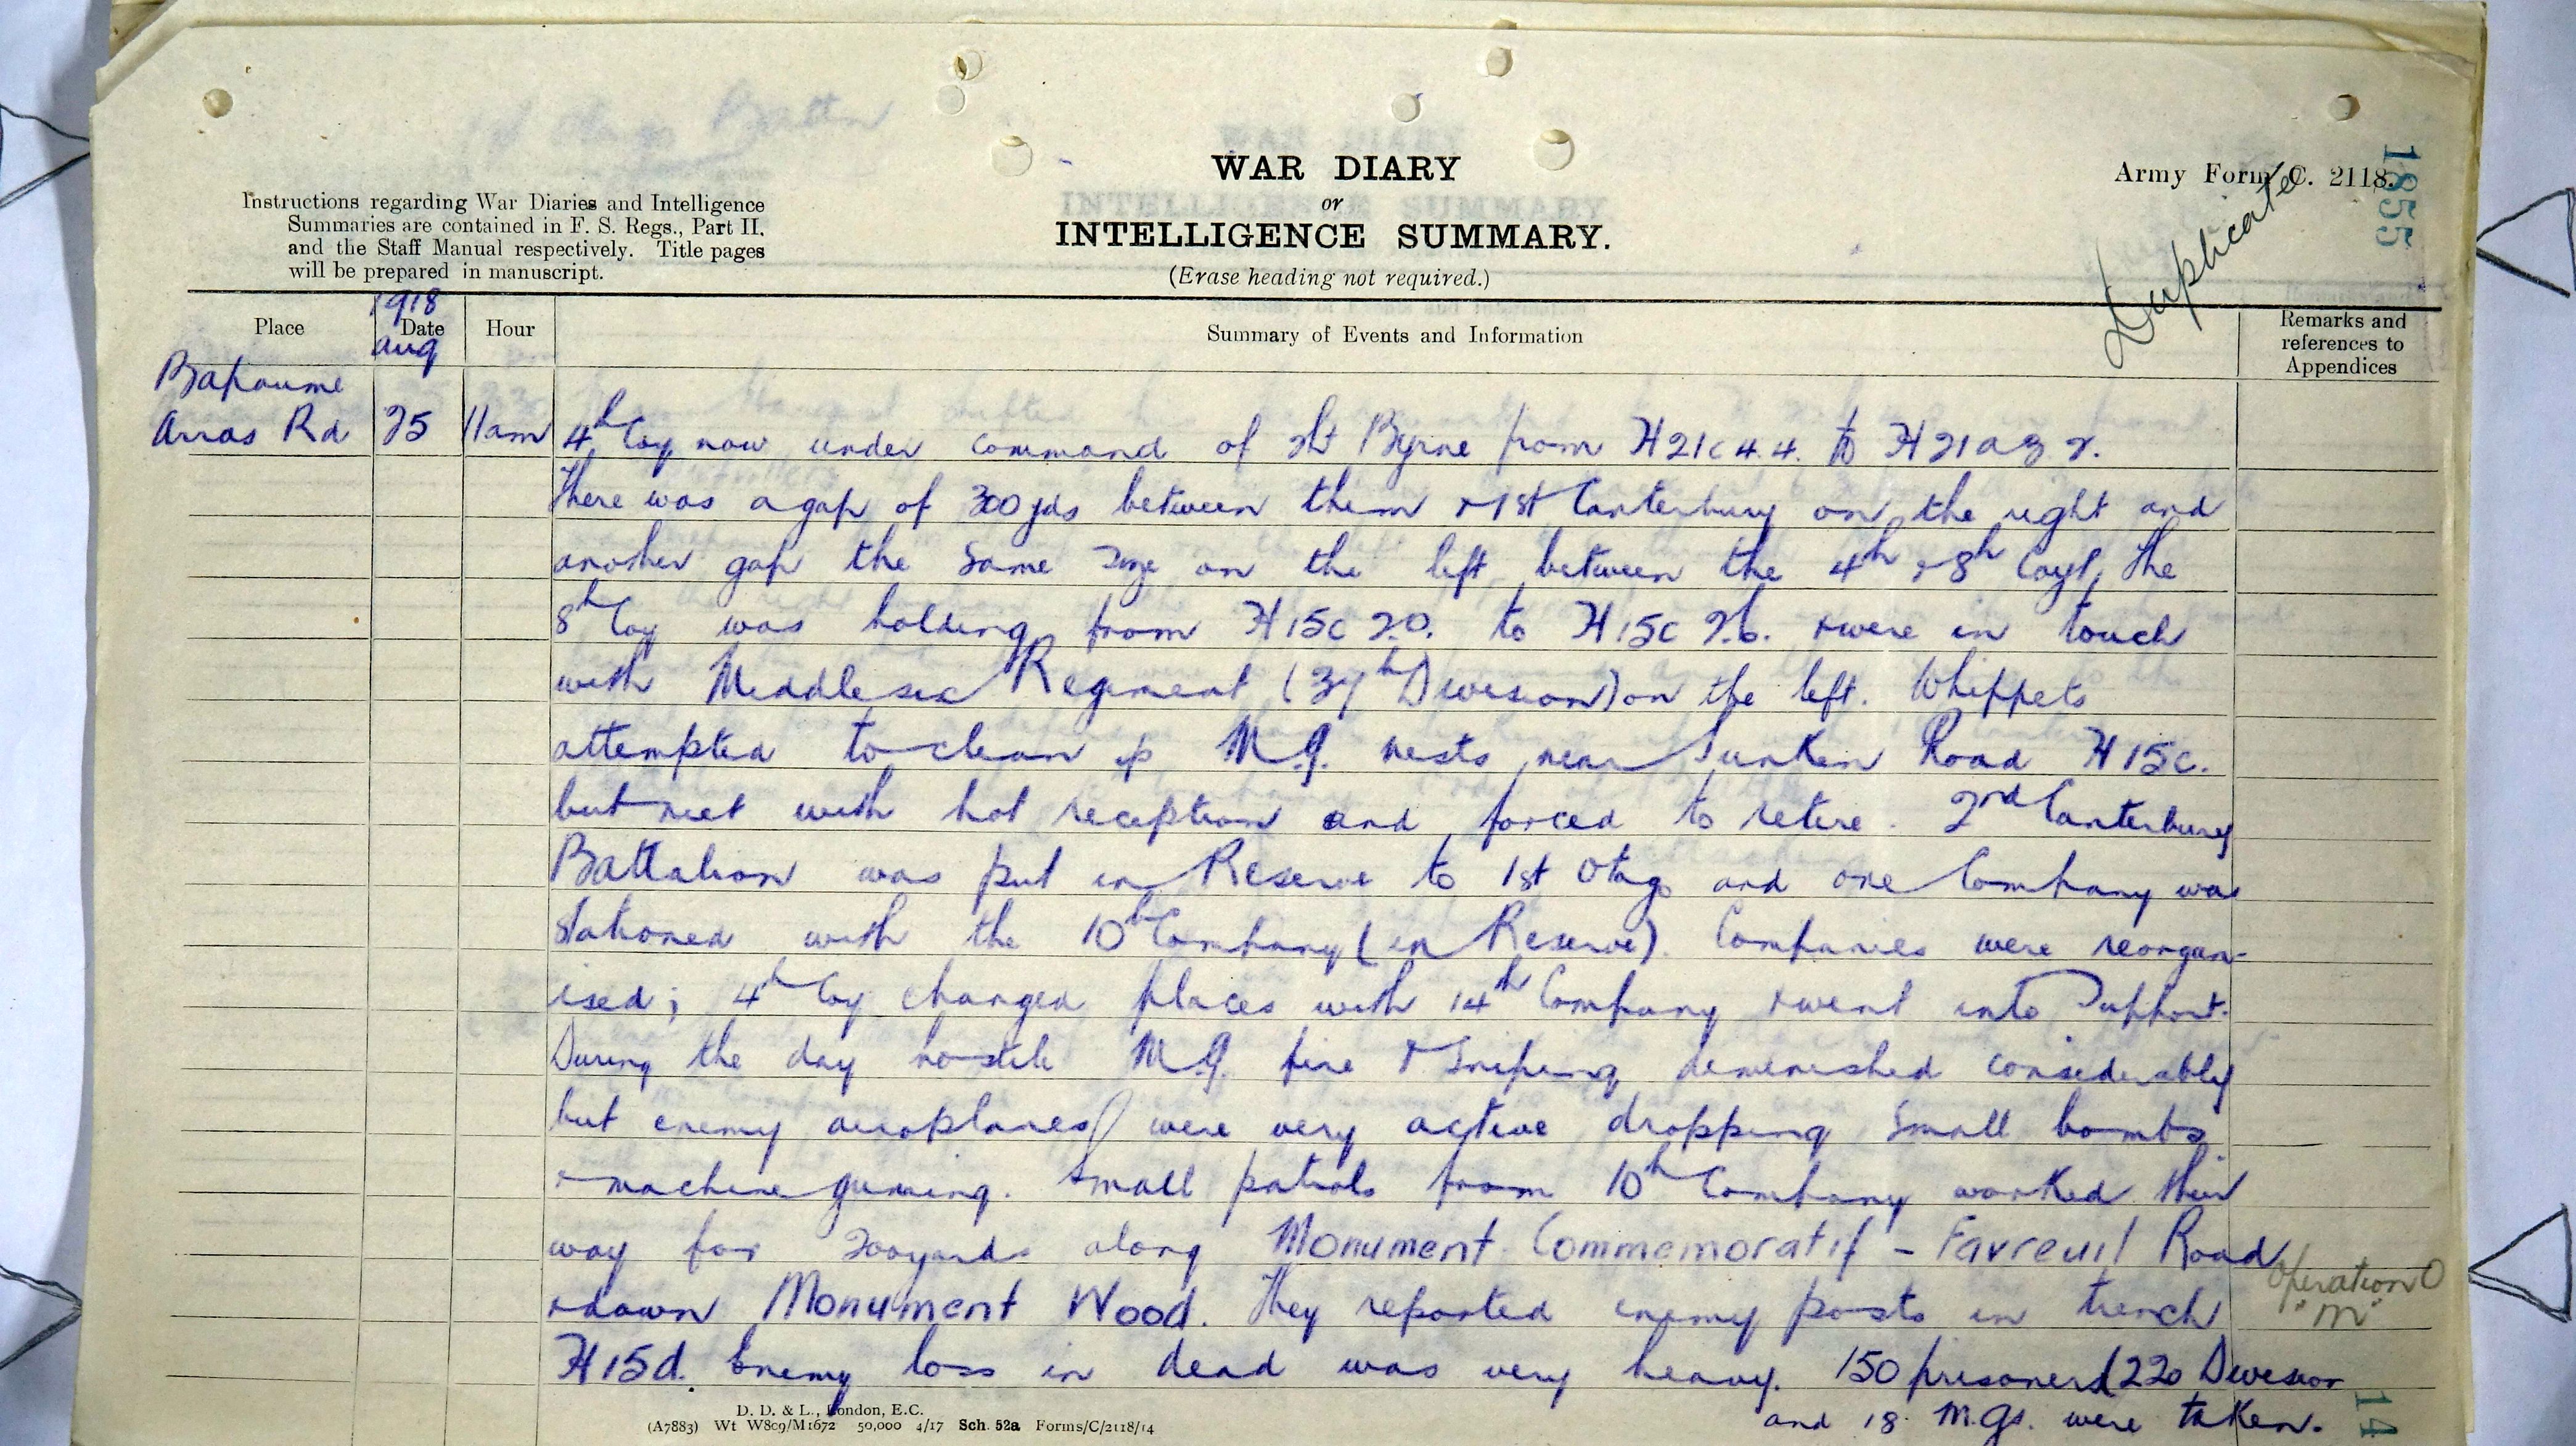 WAR DIARY
or
INTELLIGENCE SUMMARY.
(Erase heading not required.)
Army Form C. 2118.
1855
Duplicate
Instructions regarding War Diaries and Intelligence
Summaries are contained in F. S. Regs., Part II,
and the Staff Manual respectively. Title pages
will be prepared in manuscript.
Place
1918
Date
Aug
Hour
Summary of Events and Information
Remarks and
references to
Appendices
Bapaume
Arras Rd 25 11am 4th Coy now under command of Lt Byrne from H21c 4.4. to H21a
There was a gap of 300 yds between them & 1st Canterbury on the right and
another gap the same size on the left between the 4th & 8th Coys, the
8th Coy was holding from H15c 2.0. to H15c 2.6. & were in touch
with Middlesex Regiment (37th Division) on the left. Whippets
attempted to clean up M.G. nests near Sunken Road H15c.
but met with hot reception and forced to retire. 2nd Canterbury
Battalion was put in Reserve to 1st Otago and one Company was
stationed with the 10th Company (in Reserve). Companies were reorgan-
ised; 4th Coy changed places with 14th Company & went into Support.
During the day hostile M.G. fire & Sniping diminished considerably
but enemy aeroplanes were very active dropping small bombs
& machine gunning. Small patrols from 10th Company worked their
way for 200 yards along Monument Commemoratif - Favreuil Road
& down Monument Wood. They reported enemy posts in trench
H15d. Enemy loss in dead was very heavy. 150 prisoners (220 Division
and 18 M.Gs. were taken.
Operation O
"M"
D. D. & L., London, E.C.
(A7883) Wt W809/M1672 50,000 4/17 Sch. 52a Forms/C/2118/14
14